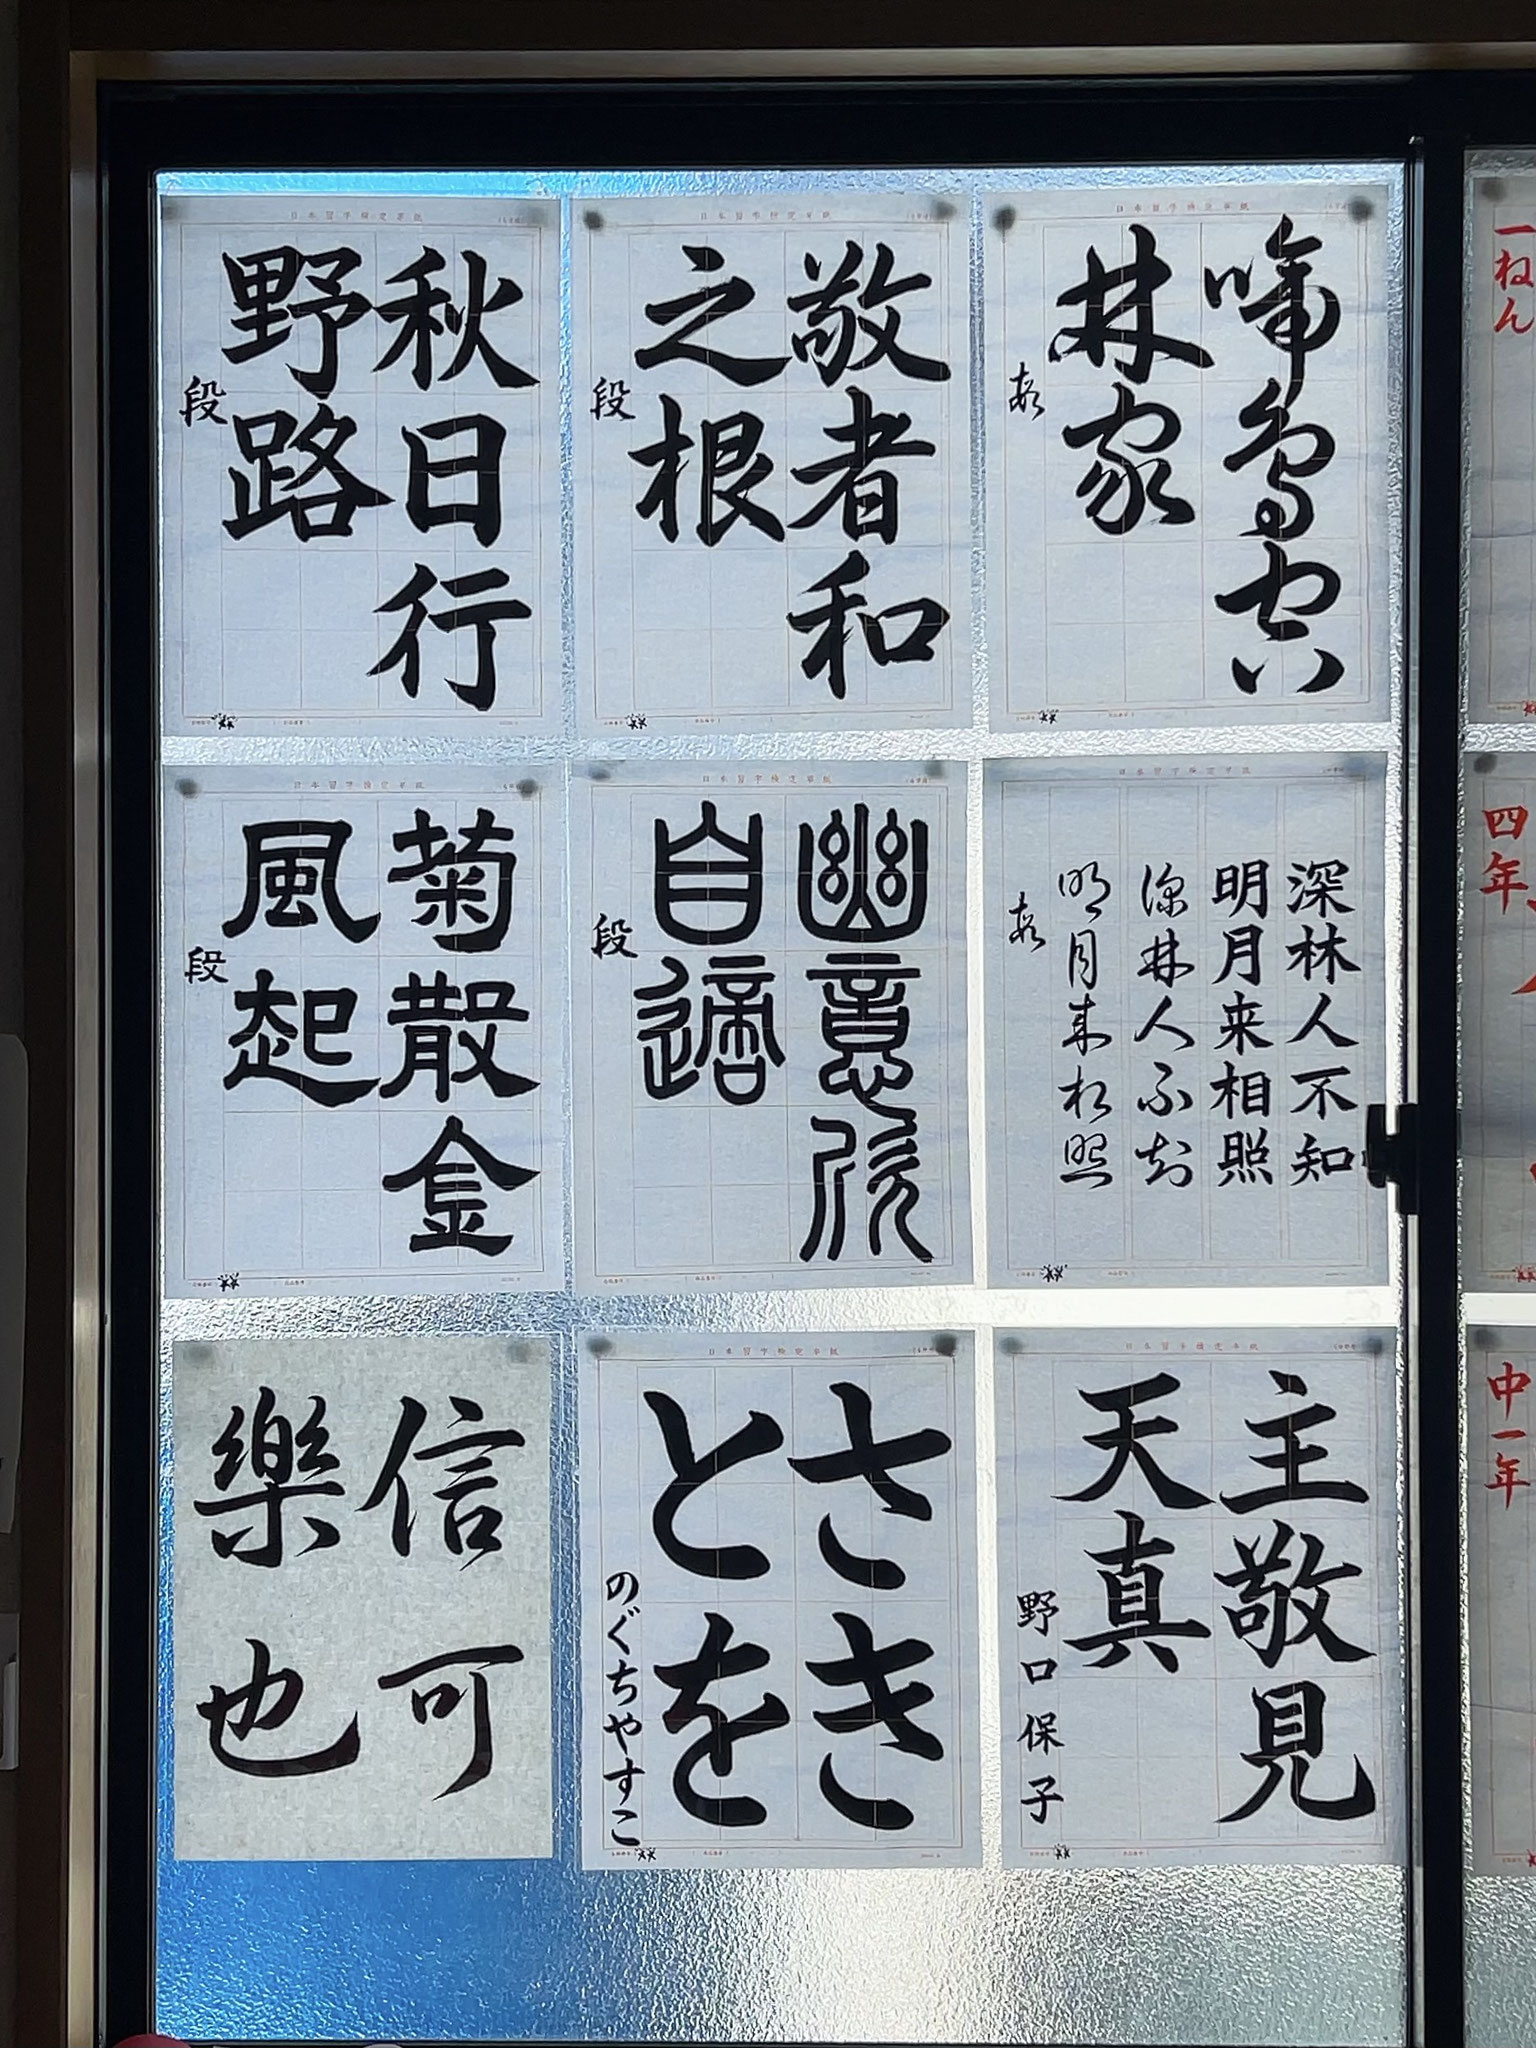 日本習字検定用紙
秋日行
野路
段
日本習字検定用紙
敬者和
之根
段
日本習字検定用紙
啼鳥穴
林家
段
一ねん
日本習字検定用紙
菊散金
風起
段
日本習字検定用紙
幽意欣
自適
段
日本習字検定用紙
深林人不知
明月来相照
深林人不知
明月来相照
段
四年
信可
樂也
日本習字検定用紙
さき
とを
のぐちやすこ
日本習字検定用紙
主敬見
天真
野口保子
中一年